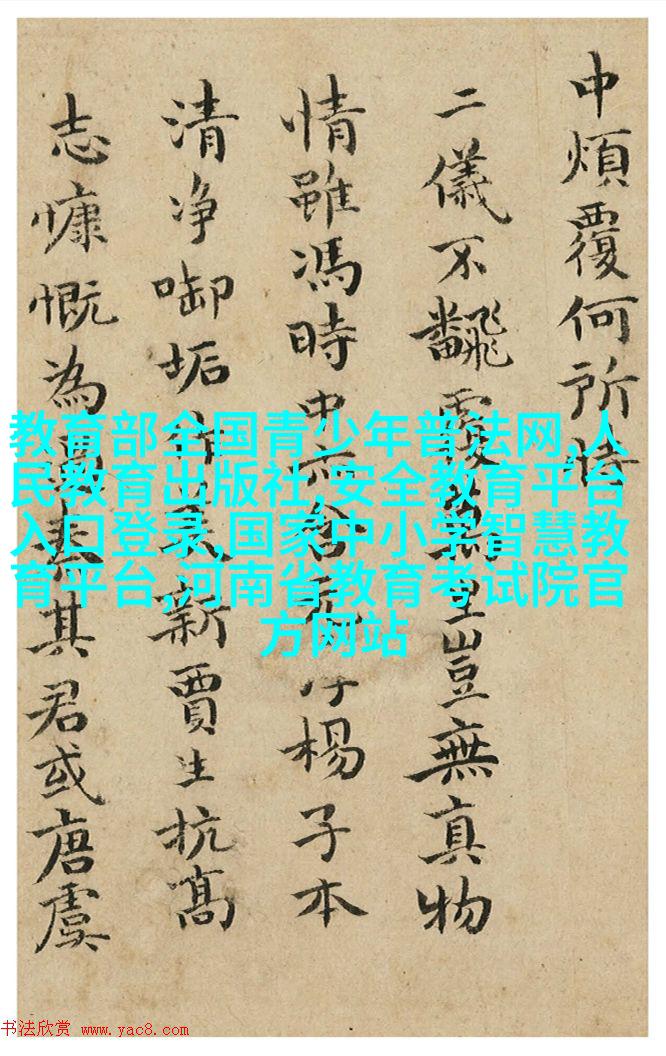 中煩覆何所恃
二儀不飜覆豈無真物
情雖馮時中楊子本
清净啣垢新賈生抗高
志慷慨為其君或唐虞
教育部全国青少年普法网,人
民教育出版社,安全教育平台
入口登录,国家中小学智慧教
育平台,河南省教育考试院官
方网站
书法欣赏 www.yac8.com